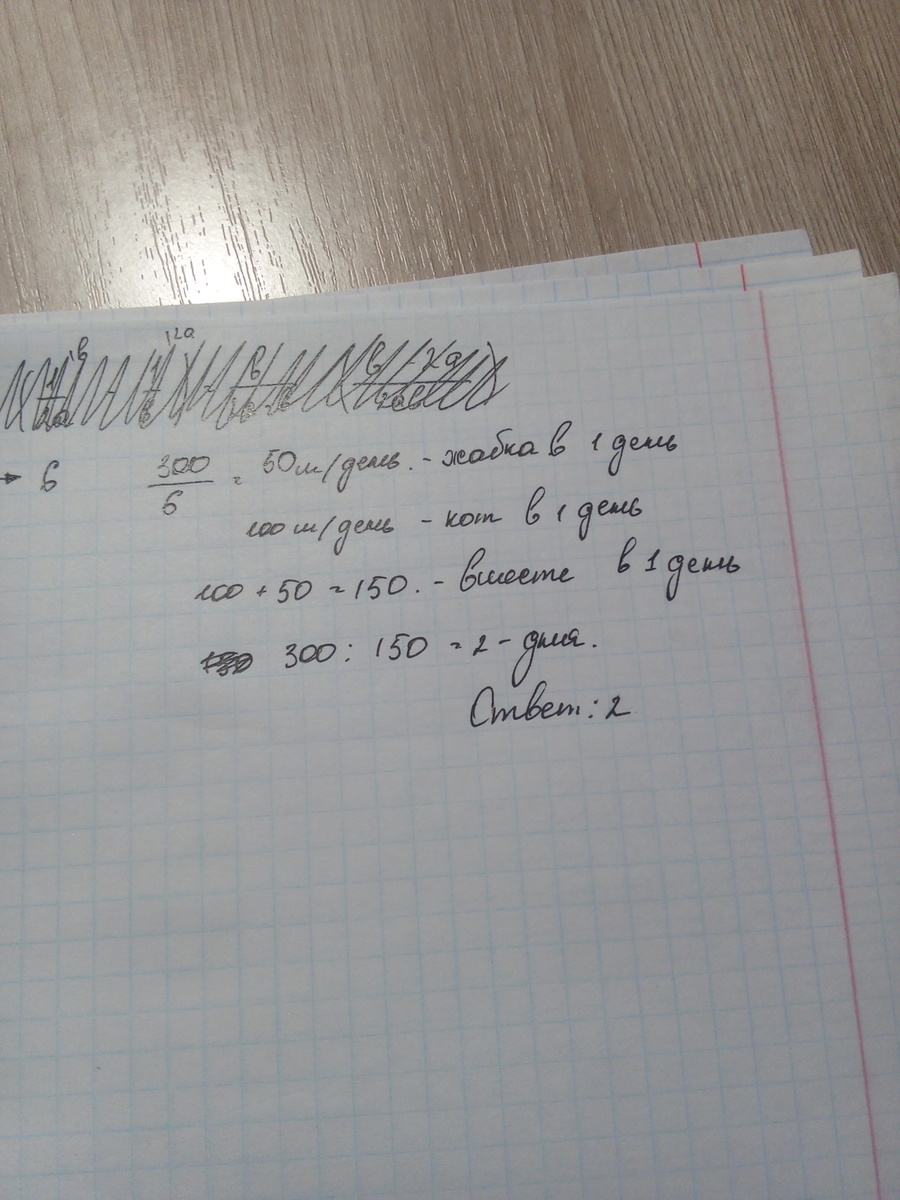 → 6 300/6 = 50 м/день. - жабка в 1 день
100 м/день - кот в 1 день
100 + 50 = 150. - вместе в 1 день
300 : 150 = 2 - дня.
Ответ: 2